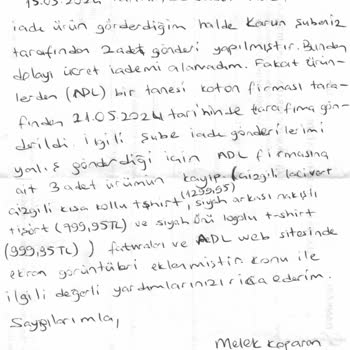 iade ürün gönderdiğim halde Karun şubeniz
tarafından 2 adet gönderi yapılmıştır. Bundan
dolayı ücret iademi alamadım. Fakat ürün-
lerden (ADL) bir tanesi koton firması tara-
fından 21.05.2024 tarihinde tarafıma gön-
derildi. İlgili şube iade gönderilerimi
yanlış gönderdiği için ADL firmasına
ait 3 adet ürünün kayıp (çizgili lacivert
çizgili kısa kollu tshirt (1299,95), siyah arkası nakışlı
tişört (999,95TL) ve siyah önü logolu t-shirt
(999,95TL)) faturaları ve ADL web sitesinde
ekran görüntüleri eklenmiştir. Konu ile
ilgili değerli yardımlarınızı rica ederim.
Saygılarımla,
Melek Koparan